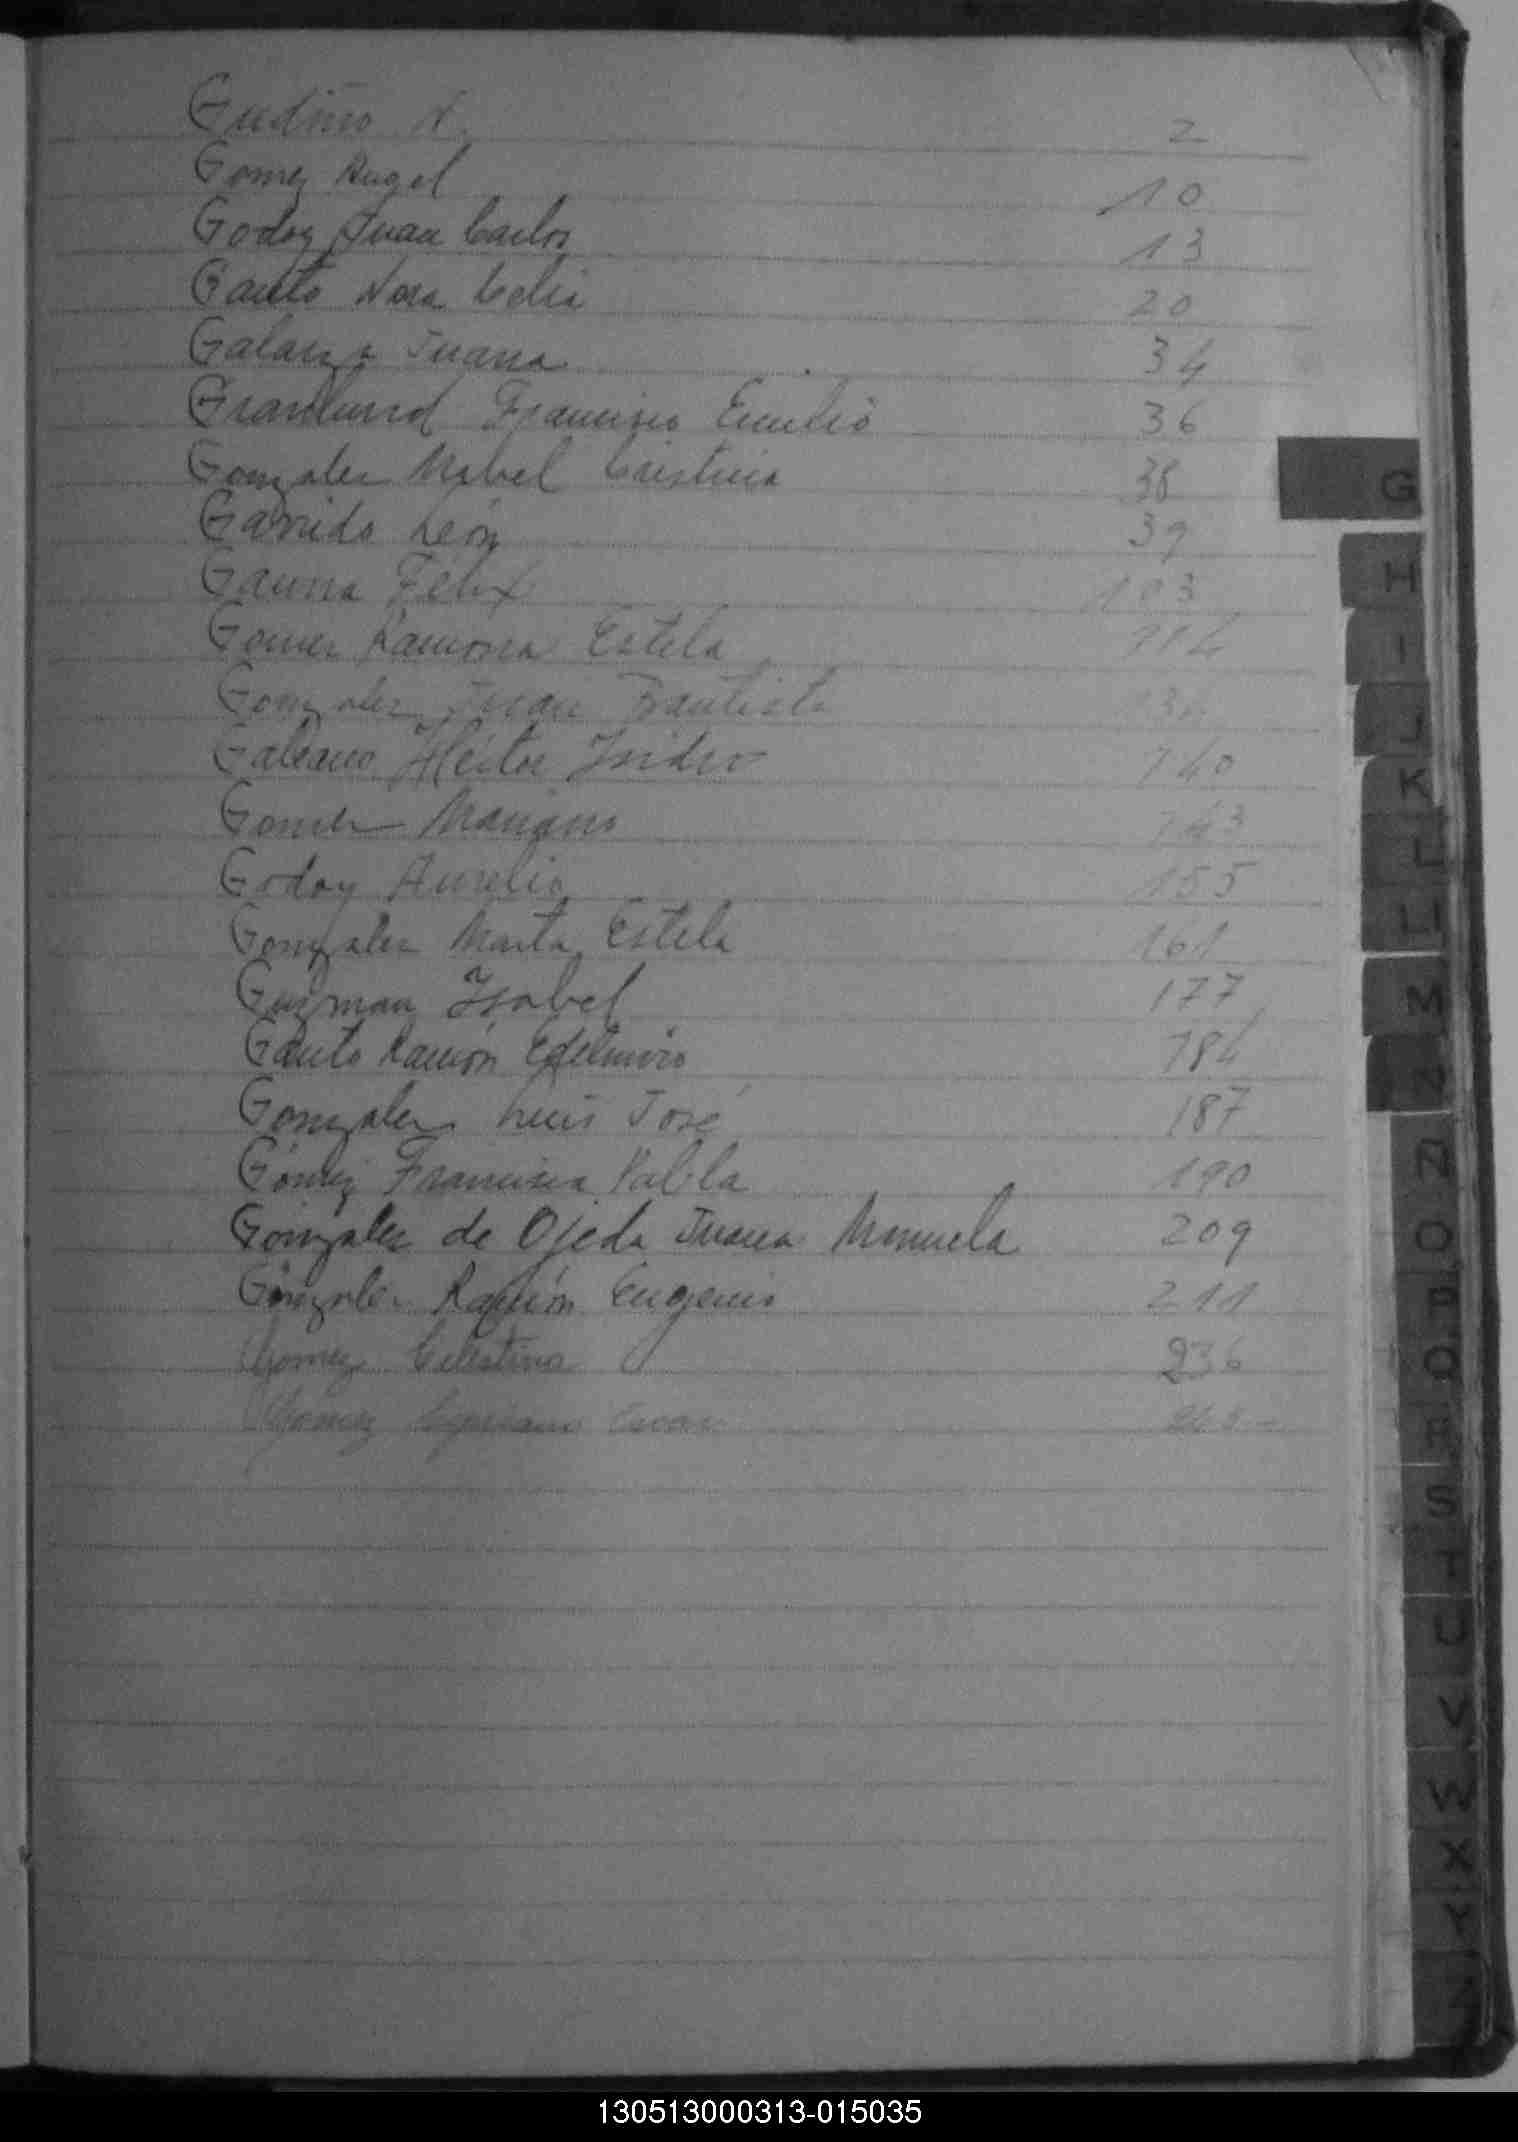 Gudiño A. 2
Gomez Angel 10
Godoy Juan Carlos 13
Gauto Nora Celia 20
Galarza Juana 34
Granlund Francisco Emilio 36
Gonzalez Mabel Cristina 38
Garrido León 39
Gauna Felix 103
Gomez Ramona Estela 114
Gonzalez Juan Bautista 134
Galeano Héctor Isidro 140
Gomez Mariano 143
Godoy Aurelio 155
Gonzalez Marta Estela 161
Guzman Isabel 177
Gauto Ramón Edelmiro 184
Gonzalez Luis José 187
Gómez Francisca Pabla 190
Gonzalez de Ojeda Juana Manuela 209
Gonzalez Ramón Eugenio 211
Gomez Celestina 236
Gomez Cipriano
G
H
I
J
K
L
Ll
M
N
Ñ
O
P
Q
R
S
T
U
V
W
X
Y
Z
130513000313-015035